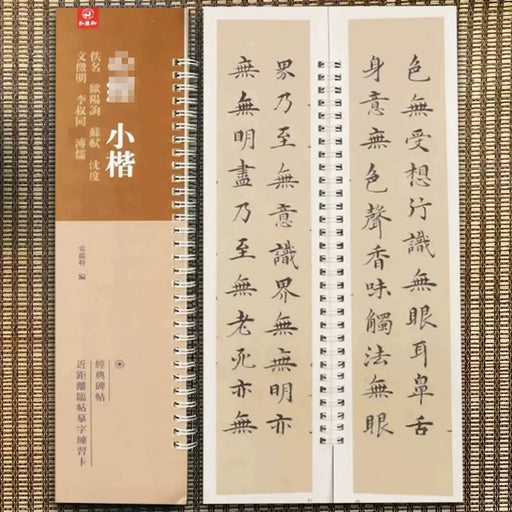 小楷
佚名 歐陽詢 蘇軾 沈度
文徵明 李叔同 溥儒
弘蘊軒 編
經典碑帖
近距離臨帖摹字練習卡
色無受想行識無眼耳鼻舌
身意無色聲香味觸法無眼
界乃至無意識界無無明亦
無無明盡乃至無老死亦無